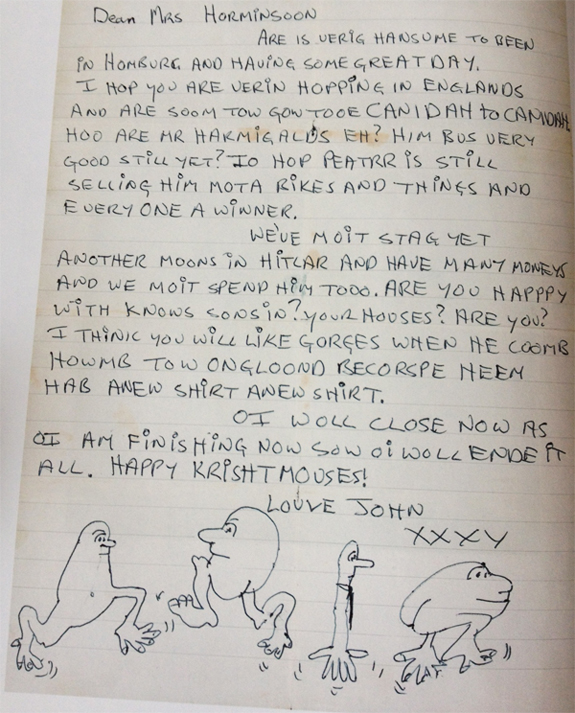 Dean Mrs HORMINSOON
ARE IS VERIG HANSUME TO BEEN
IN HOMBURG AND HAVING SOME GREAT DAY.
I HOP YOU ARE VERIN HOPPING IN ENGLANDS
AND ARE SOOM TOW GOW TOOE CANIDAH to CANIDAH
HOO ARE MR HARMIGALDS EH? HIM BUS VERY
GOOD STILL YET? IO HOP PEATRR IS STILL
SELLING HIM MOTA RIKES AND THINGS AND
EVERY ONE A WINNER.
WE'VE MOIT STAG YET
ANOTHER MOONS IN HITLAR AND HAVE MANY MONEYS
AND WE MOIT SPEND HIM TOOO. ARE YOU HAPPPY
WITH KNOWS SONSIN? YOUR HOUSES? ARE YOU?
I THINK YOU WILL LIKE GORGES WHEN HE COOMB
HOWMB TOW ONGLOOND BECORSPE HEEM
HAB ANEW SHIRT ANEW SHIRT.
OI WOLL CLOSE NOW AS
OI AM FINISHING NOW SOW OI WOLL ENDE IT
ALL. HAPPY KRISHTMOUSES!
LOUVE JOHN
XXXY